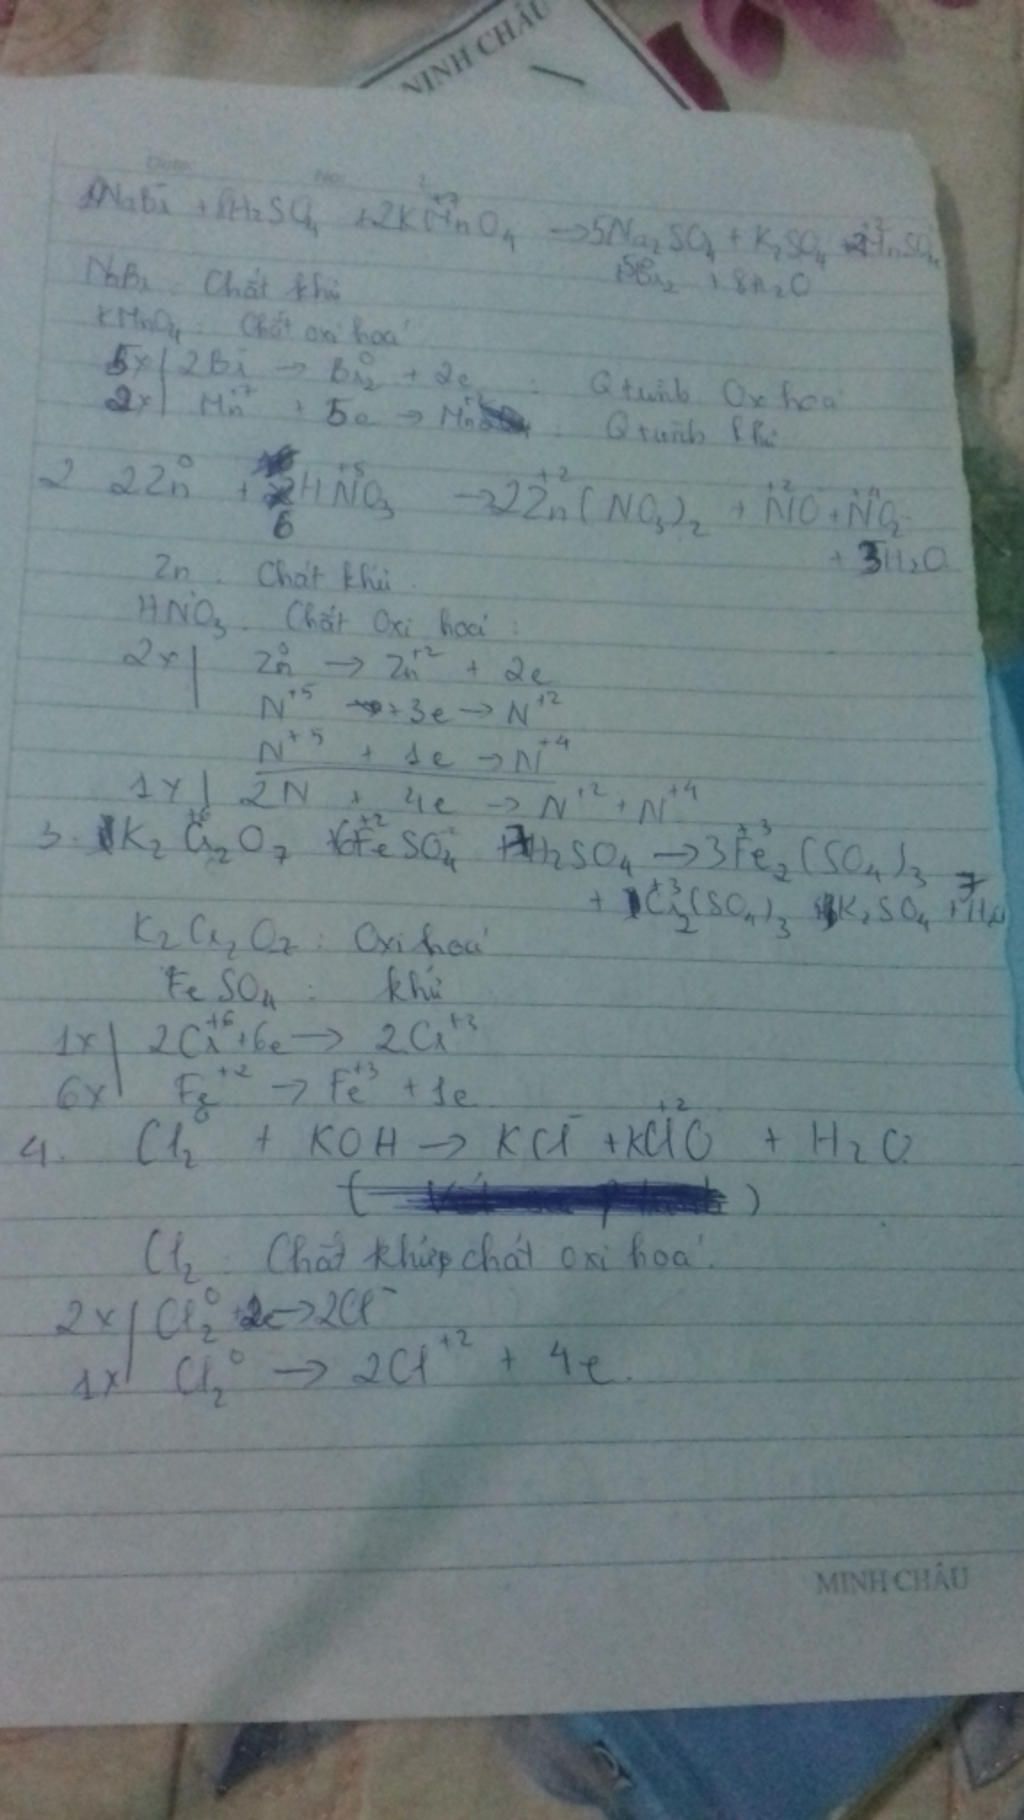 MINH CHÂU
Date: No:
10NaBr + 8H2SO4 + 2KMn+7O4 → 5Na2SO4 + K2SO4 + 2Mn+2SO4
+ 5Br2 + 8H2O
NaBr: Chất khử
KMnO4: Chất oxi hoá
5x | 2Br → Br2 0 + 2e : Q trình Ox hoá
2x | Mn+7 + 5e → Mn+2 : Q trình khử
2 2Zn0 + 6HN+5O3 → 2Zn+2(NO3)2 + N+2O + N+4O2
+ 3H2O
Zn: Chất khử.
HNO3: Chất Oxi hoá:
2x | Zn0 → Zn+2 + 2e
N+5 + 3e → N+2
N+5 + 1e → N+4
1x | 2N + 4e → N+2 + N+4
3. 1K2Cr+62O7 + 6Fe+2SO4 + 7H2SO4 → 3Fe+32(SO4)3
+ 1Cr+32(SO4)3 + 1K2SO4 + 7H2O
K2Cr2O7: Oxi hoá
FeSO4: khử
1x | 2Cr+6 + 6e → 2Cr+3
6x | Fe+2 → Fe+3 + 1e
4. Cl20 + KOH → KCl- + KCl+2O + H2O
( )
Cl2: Chất khử, chất oxi hoá.
2x | Cl20 + 2e → 2Cl-
1x | Cl20 → 2Cl+2 + 4e.
MINH CHÂU